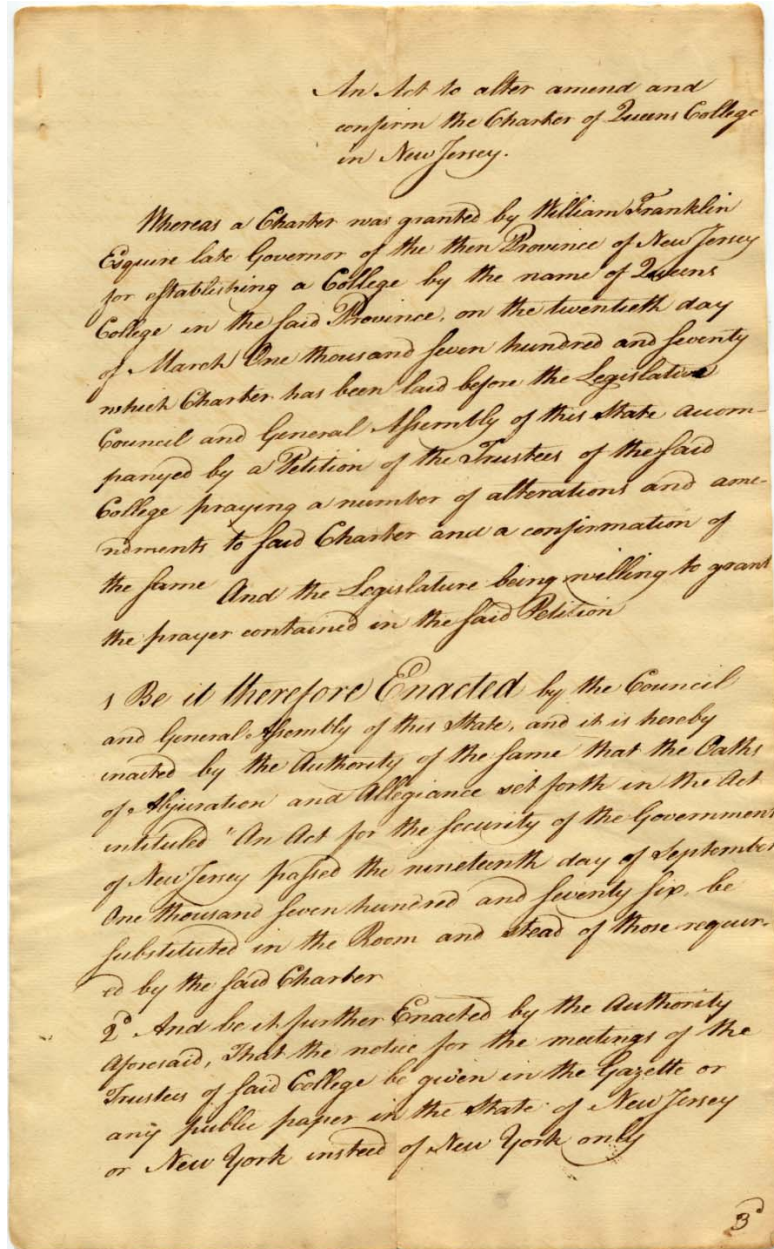 An Act to alter amend and
confirm the Charter of Queens College
in New Jersey.
Whereas a Charter was granted by William Franklin
Esquire late Governor of the then Province of New Jersey
for establishing a College by the name of Queens
College in the said Province, on the twentieth day
of March One thousand seven hundred and seventy
which Charter has been laid before the Legislative
Council and General Assembly of this State accom-
panyed by a Petition of the Trustees of the said
College praying a number of alterations and ame-
ndments to said Charter and a confirmation of
the same And the Legislature being willing to grant
the prayer contained in the said Petition
1 Be it therefore Enacted by the Council
and General Assembly of this State, and it is hereby
enacted by the Authority of the same that the Oaths
of Abjuration and Allegiance set forth in the Act
intituled "An Act for the security of the Government
of New Jersey passed the nineteenth day of September
One thousand seven hundred and seventy six, be
substituted in the Room and stead of those requir-
ed by the said Charter
2d And be it further Enacted by the Authority
Aforesaid, That the notice for the meetings of the
Trustees of said College be given in the Gazette or
any public paper in the State of New Jersey
or New York instead of New York only
3d